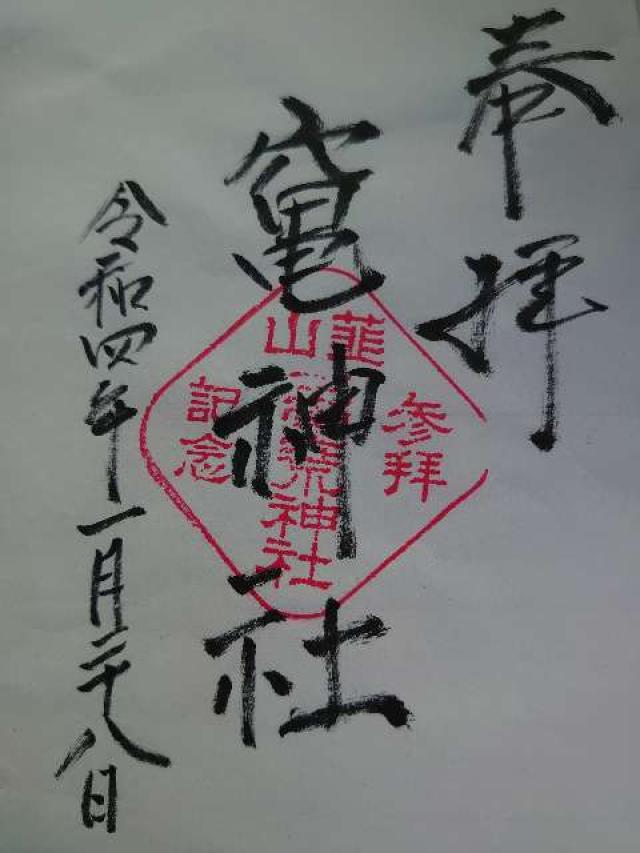 奉拝
竈神社
令和四年一月二十八日
参拝
韮山
荒神社
記念